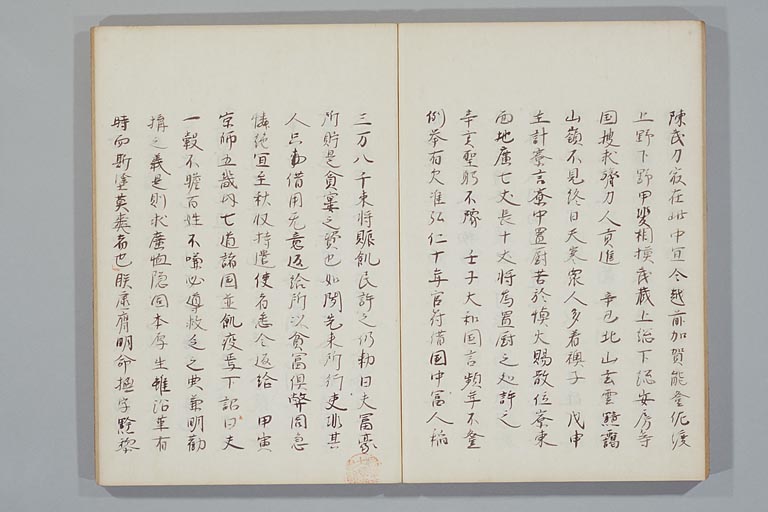 陳民力寂在此中宜令越前加賀能登佐渡
上野下野甲斐相摸武蔵上総下総安房等
国捜求膂力人貢進 辛巳北山玄雲黯靄
山嶺不見終日天寒衆人多着襖子 戊申
主計寮言寮中置厨苦於慎火賜散位寮東
西地廣七丈長十丈将為置厨之処許之
辛亥聖躬不豫 壬子大和国言頻年不登
例挙有欠准弘仁十年官符借国中富人稲
三万八千束将賑飢民許之仍勅曰夫富豪
所貯是貧窶之資也如聞先来所行吏乖其
人只事借用无意返給所以貧富倶弊周急
憐絶宜至秋収特遣使者悉令返給 甲寅
京師五畿内七道諸国並飢疫焉下詔曰夫
一穀不贍百姓不嗛必遵救乏之典兼明勧
揖之義是則求瘼恤隠固本厚生雖沿革有
時而斯塗莫爽者也朕虔膺明命撫字黔黎